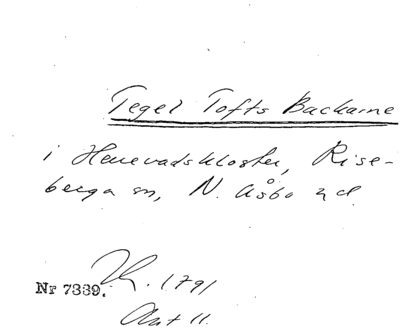 Tegel Tofts Backarne
i Herrevadskloster, Rise-
berga sn, N. Åsbo hd
Nr 7339. Kr. 1791
Akt 11.